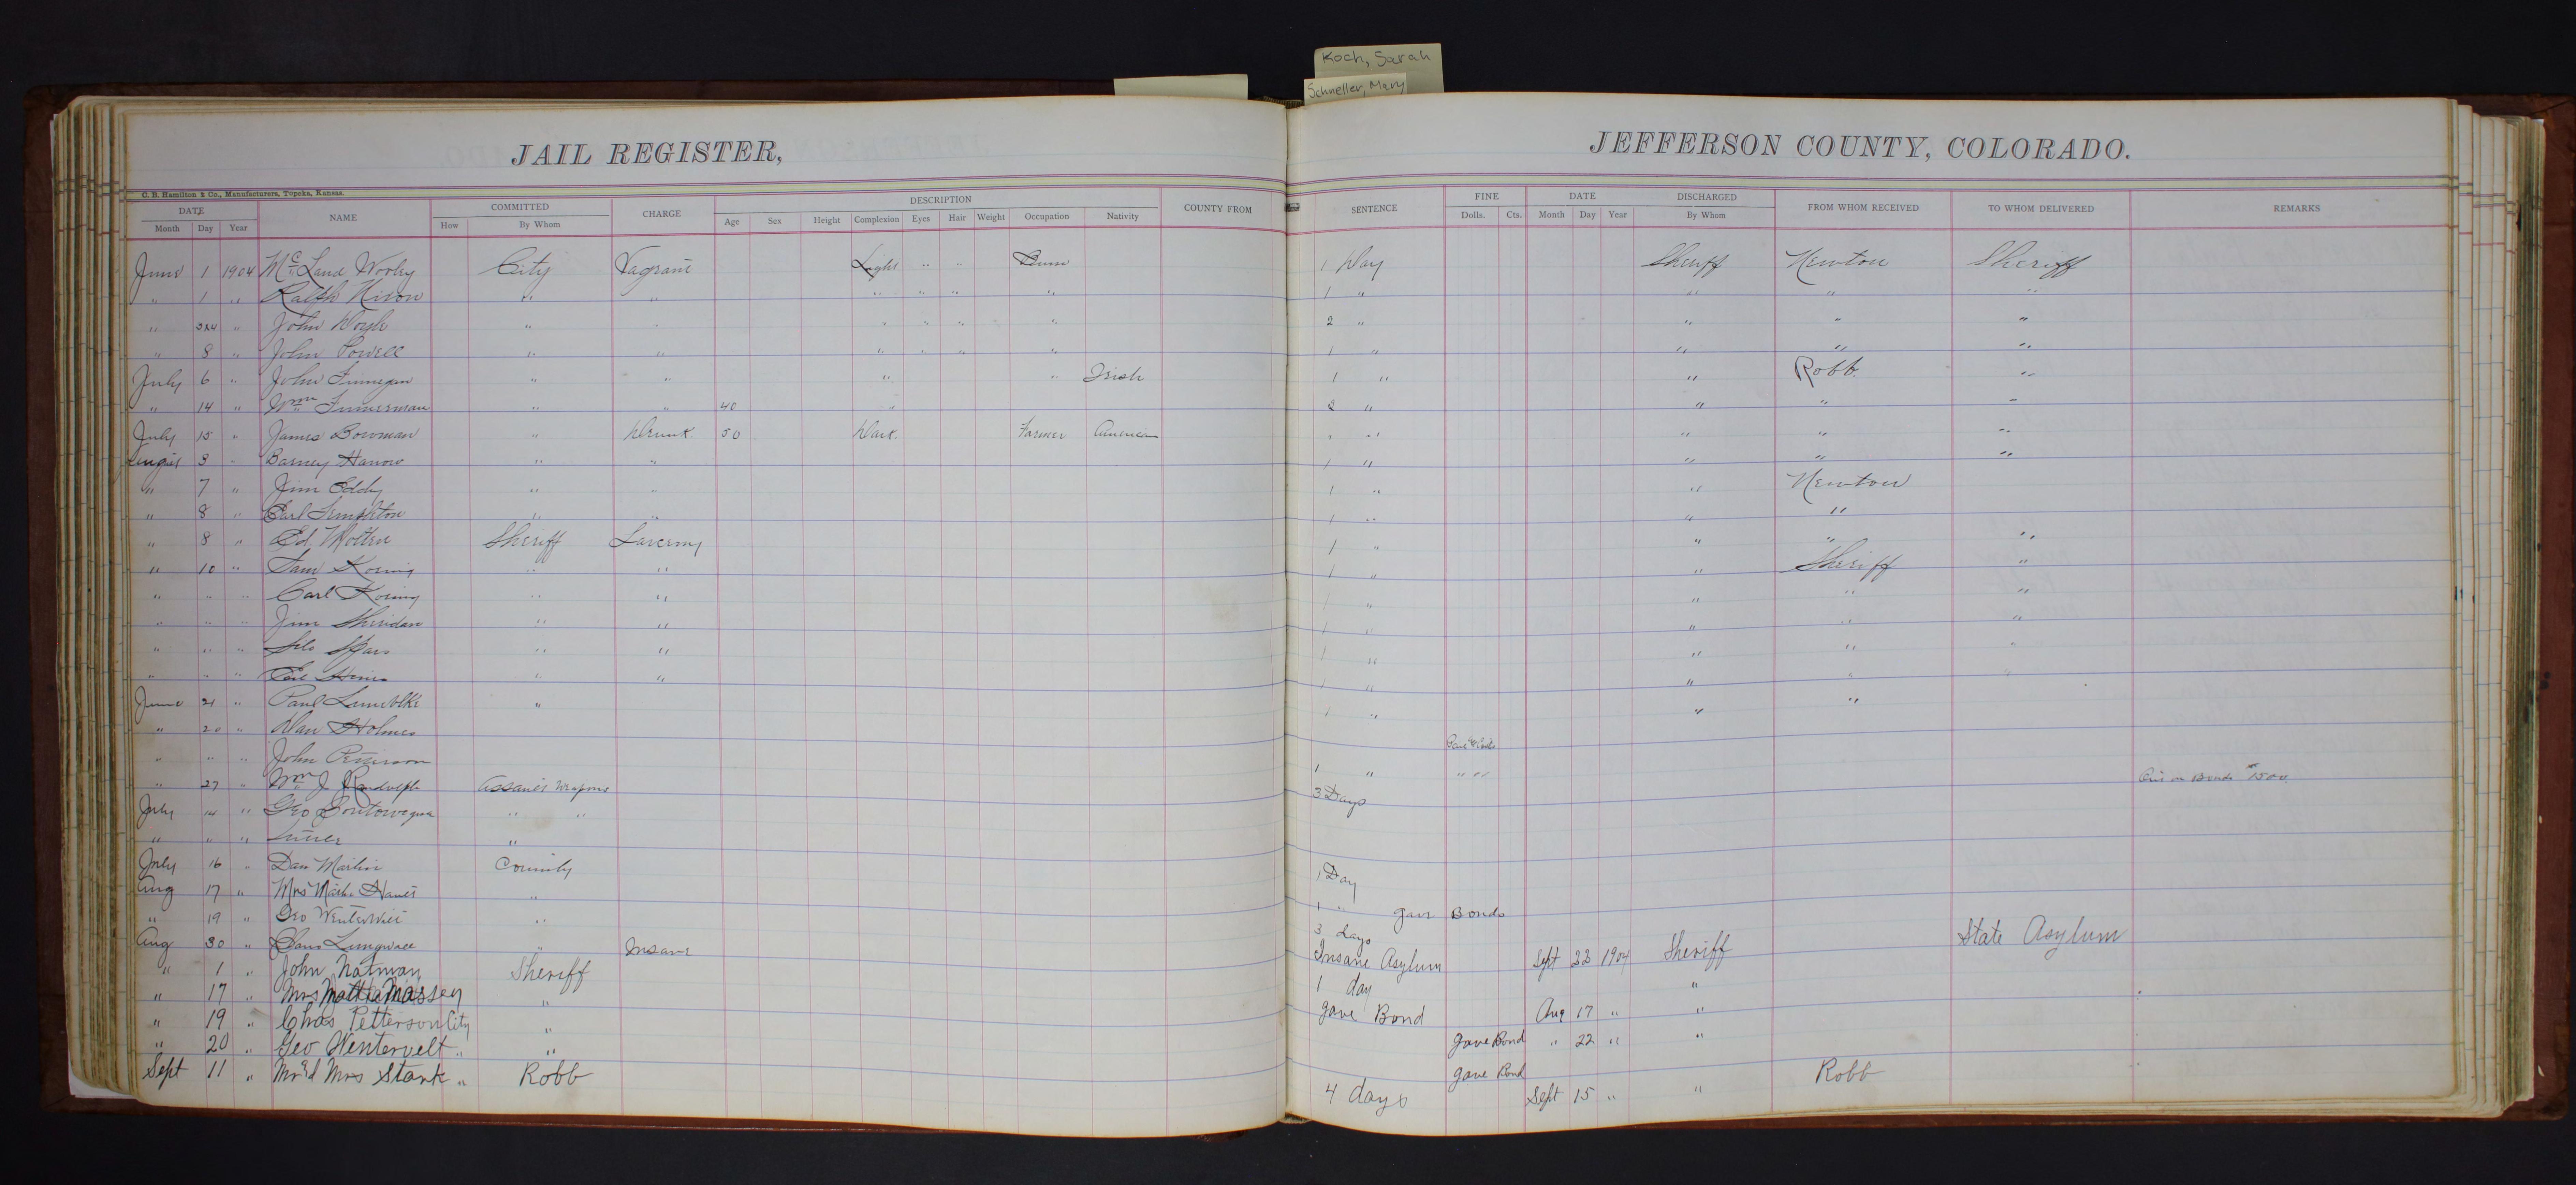 Koch, Sarah
Schneller, Mary
JAIL REGISTER,
JEFFERSON COUNTY, COLORADO.
C. B. Hamilton & Co., Manufacturers, Topeka, Kansas.
DATE NAME COMMITTED CHARGE DESCRIPTION COUNTY FROM SENTENCE FINE DATE DISCHARGED FROM WHOM RECEIVED TO WHOM DELIVERED REMARKS
Month Day Year How By Whom Age Sex Height Complexion Eyes Hair Weight Occupation Nativity Dolls. Cts. Month Day Year By Whom
June 1 1904 McLand Worley City Vagrant Light " " Bum 1 Day Sheriff Newton Sheriff
" 1 " Ralph Nixon " " " " " " 1 " " " "
" 3&4 " John Doyle " " " " " " 2 " " " "
" 8 " John Powell " " " " " " 1 " " " "
July 6 " John Finnegan " " " " Irish 1 " " Robb "
" 14 " Wm " " 40 2 " " " "
July 15 " James Bowman " Drunk 50 Dark. Farmer American " " " " "
August 3 " Barney " " 1 " " " "
" 7 " Jim Eddy " " 1 " " Newton
" 8 " Earl " " 1 " " "
" 8 " Ed. Wolten Sheriff Larceny 1 " " " "
" 10 " Sam Koenig " " 1 " " Sheriff "
" " " Carl Koenig " " 1 " " " "
" " " Jim Sheridan " " 1 " " " "
" " " " " 1 " " " "
" " " " " 1 " " " "
June 21 " Paul " 1 " " "
" 20 " Dan Holmes
" " " John Peterson 1 " " "
" 27 " Wm J Randolph Assault Weapons 3 Days Out on Bonds $1500.
July 14 " Geo " "
" " " "
July 16 " Dan Martin County 1 Day
Aug 17 " Mrs " 1 " gave Bonds
" 19 " Geo " 3 days
Aug 30 " " Insane Insane Asylum Sept 22 1904 Sheriff State Asylum
" 1 " John Natman Sheriff 1 day "
" 17 " Mrs Mattia Massey " gave Bond Aug 17 " "
" 19 " Chas Petterson City " gave Bond " 22 " "
" 20 " Geo Wentervelt " " gave Bond
Sept 11 " Mr & Mrs Stark " Robb 4 days Sept 15 " " Robb